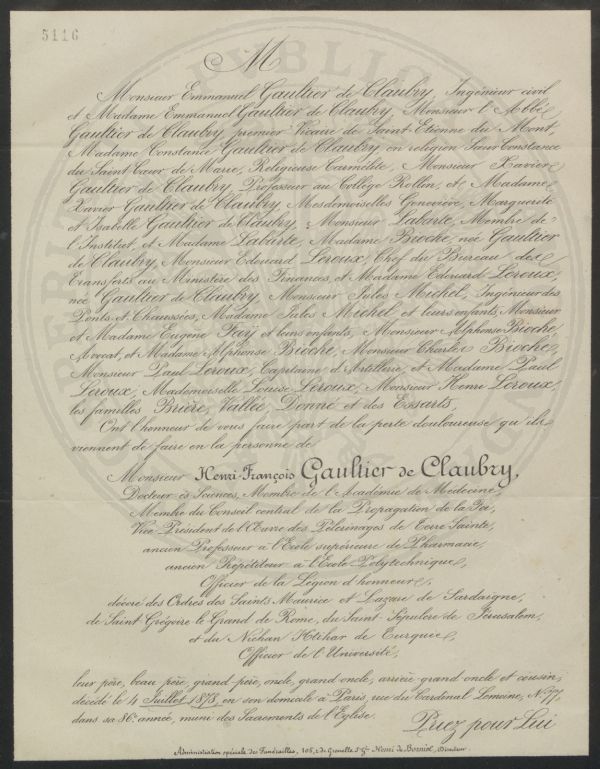 5116
M
Monsieur Emmanuel Gaultier de Claubry, Ingénieur civil
et Madame Emmanuel Gaultier de Claubry, Monsieur l'Abbé
Gaultier de Claubry, premier Vicaire de Saint-Etienne du Mont,
Madame Constance Gaultier de Claubry en religion Sœur Constance
du Saint Cœur de Marie, Religieuse Carmélite, Monsieur Xavier
Gaultier de Claubry, Professeur au Collège Rollin, et, Madame
Xavier Gaultier de Claubry Mesdemoiselles Geneviève, Marguerite
et Isabelle Gaultier de Claubry, Monsieur Labarte, Membre de
l'Institut, et Madame Labarte, Madame Brioche, née Gaultier
de Claubry, Monsieur Edouard Leroux, Chef du Bureau des
Transferts au Ministère des Finances, et Madame Edouard Leroux,
née Gaultier de Claubry, Monsieur Jules Michel, Ingénieur des
Ponts et Chaussées, Madame Jules Michel et leurs enfants, Monsieur
et Madame Eugène Faÿ et leurs enfants, Monsieur Alphonse Bioche,
Avocat, et Madame Alphonse Bioche, Monsieur Charles Bioche,
Monsieur Paul Leroux, Capitaine d'Artillerie, et Madame Paul
Leroux, Mademoiselle Louise Leroux, Monsieur Henri Leroux,
les familles Brière, Vallée, Donné et des Essarts,
Ont l'honneur de vous faire part de la perte douloureuse qu'ils
viennent de faire en la personne de
Monsieur Henri-François Gaultier de Claubry,
Docteur ès Sciences, Membre de l'Académie de Médecine,
Membre du Conseil central de la Propagation de la Foi,
Vice-Président de l'Œuvre des Pèlerinages de Terre Sainte,
ancien Professeur à l'Ecole supérieure de Pharmacie,
ancien Répétiteur à l'Ecole Polytechnique,
Officier de la Légion d'honneur,
décoré des Ordres des Saints Maurice et Lazare de Sardaigne,
de Saint Grégoire le Grand de Rome, du Saint-Sépulcre de Jérusalem,
et du Nichan Iftihar de Turquie,
Officier de l'Université,
leur père, beau père, grand-père, oncle, grand oncle, arrière-grand oncle et cousin,
décédé le 4 Juillet 1878, en son domicile à Paris, rue du Cardinal Lemoine, N°. 77,
dans sa 86e. année, muni des Sacrements de l'Eglise.
Priez pour Lui
Administration spéciale des Funérailles, 105, r. de Grenelle St. Gn. Henri de Borniol, Directeur.